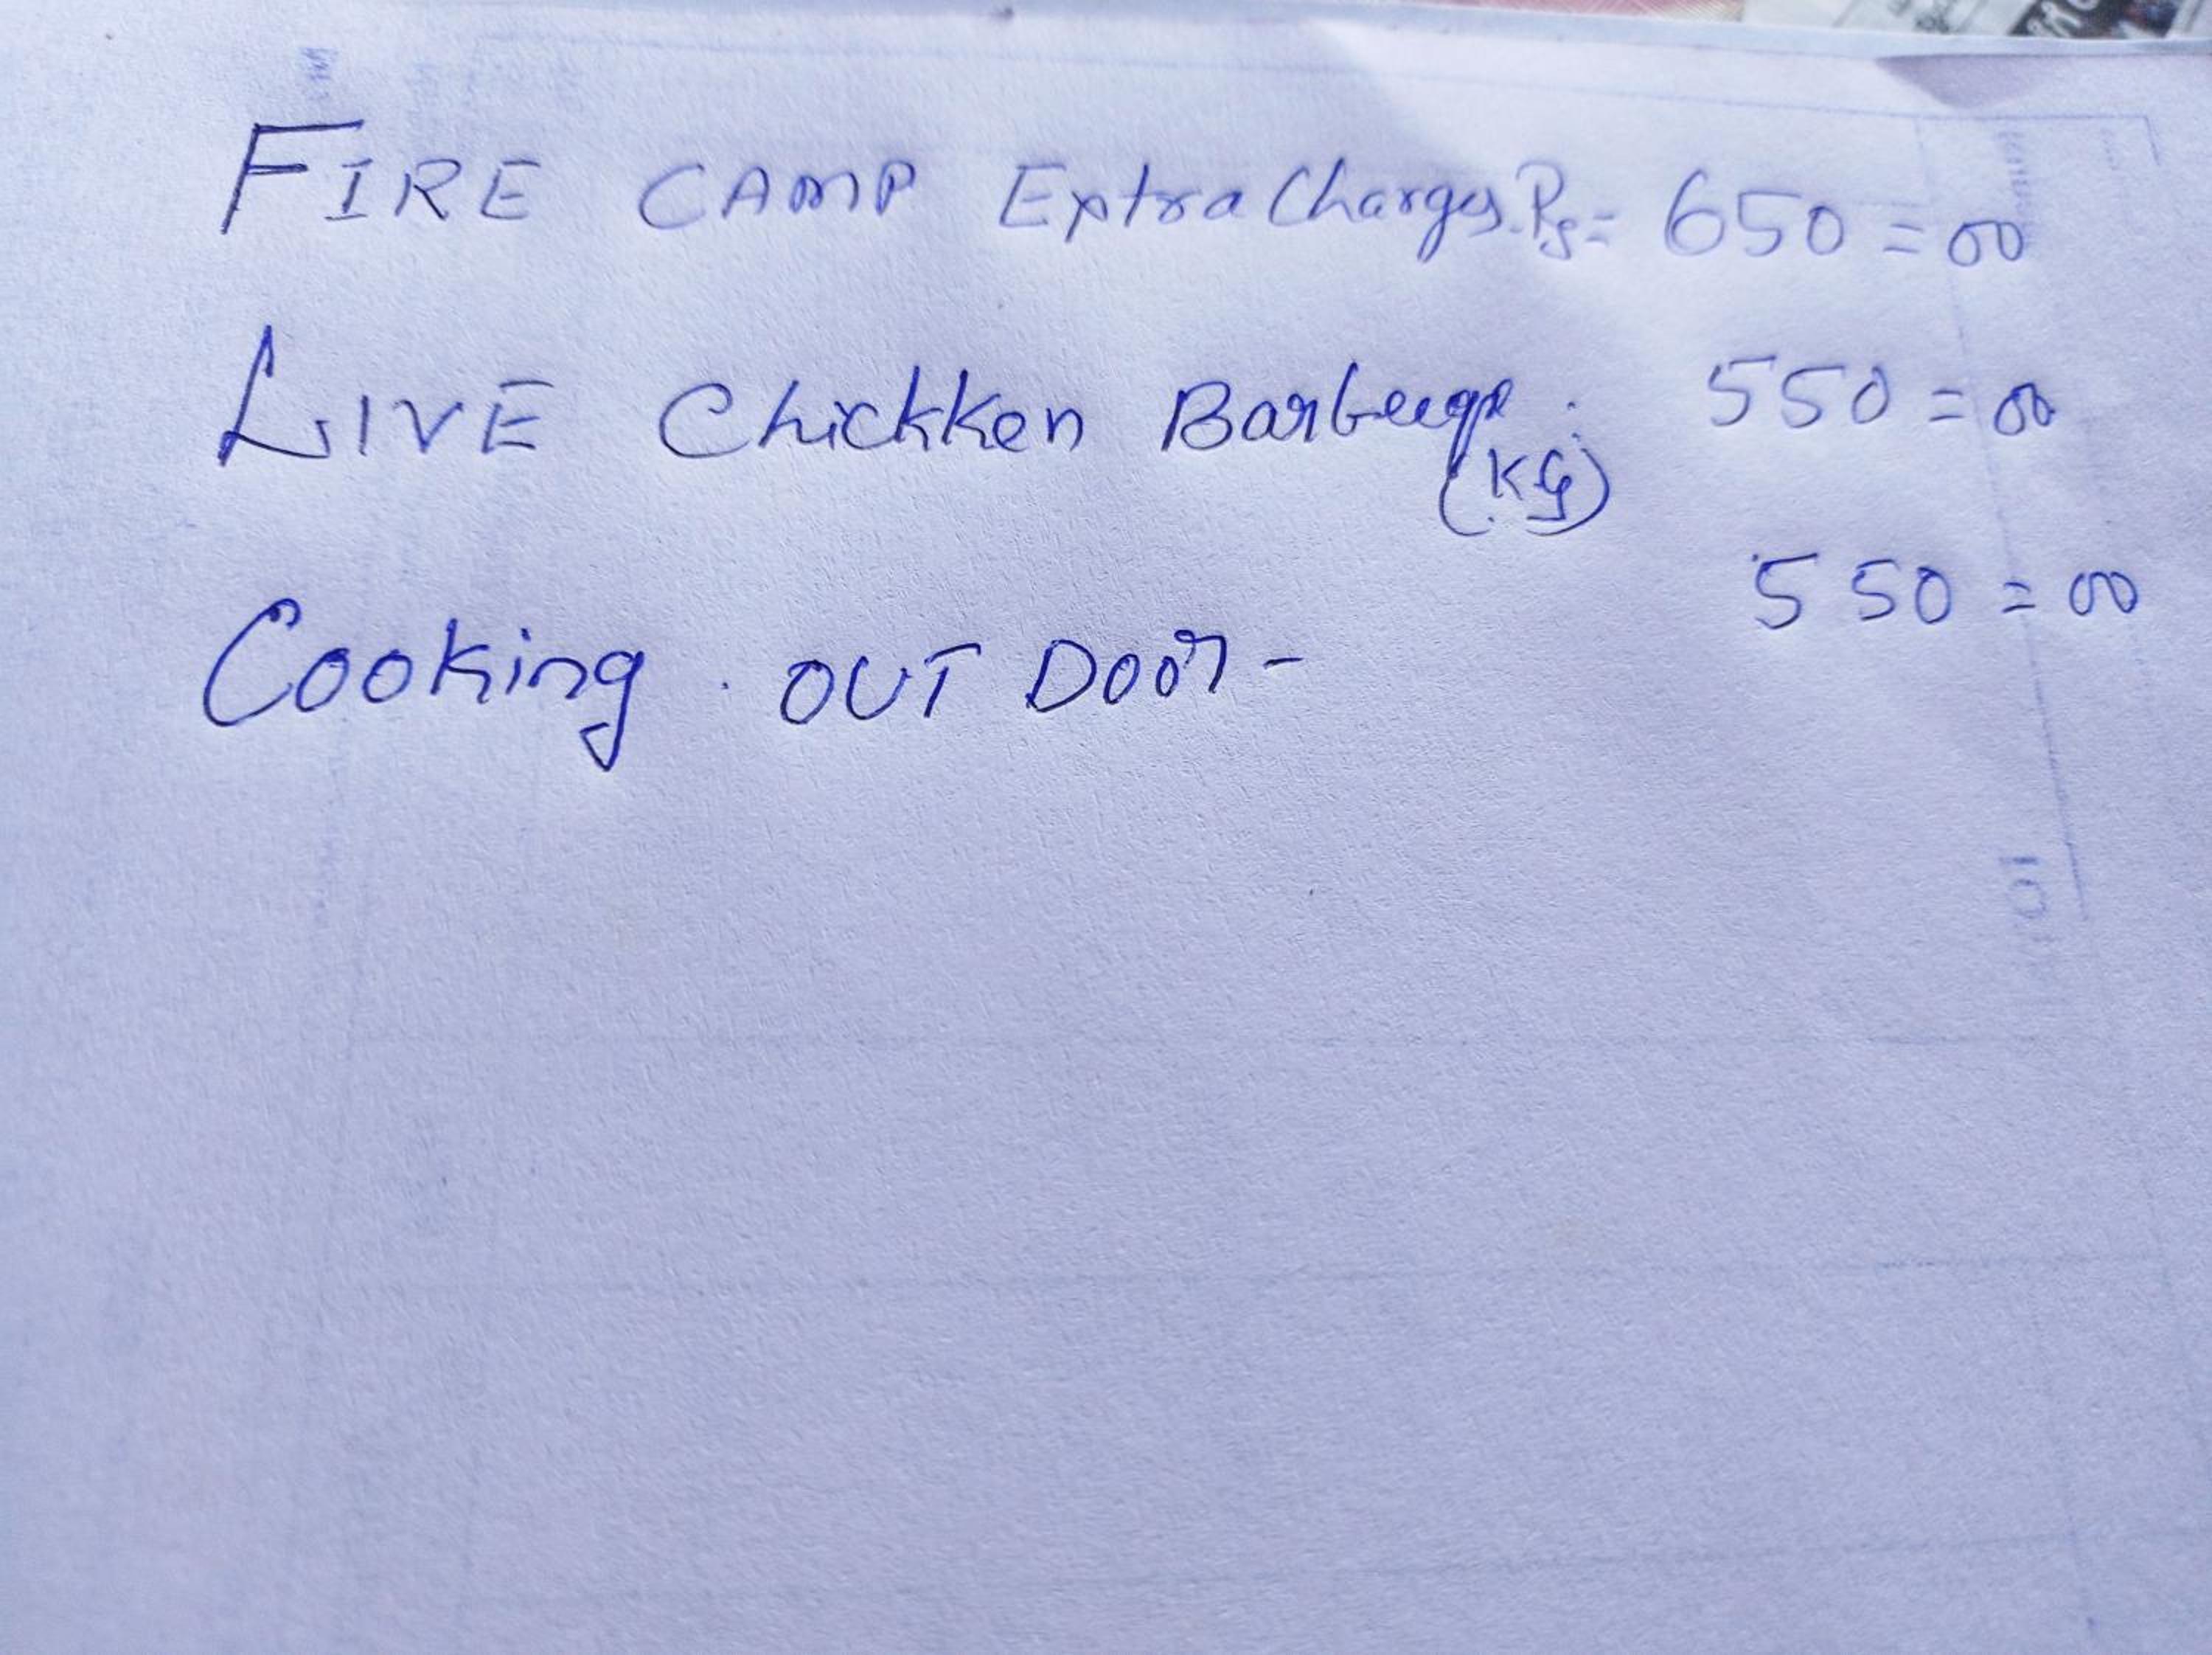 FIRE CAMP Extra Charges. Rs = 650 = 00
LIVE Chickken Barbeeqe : 550 = 00
(KG)
Cooking OUT Door - 550 = 00